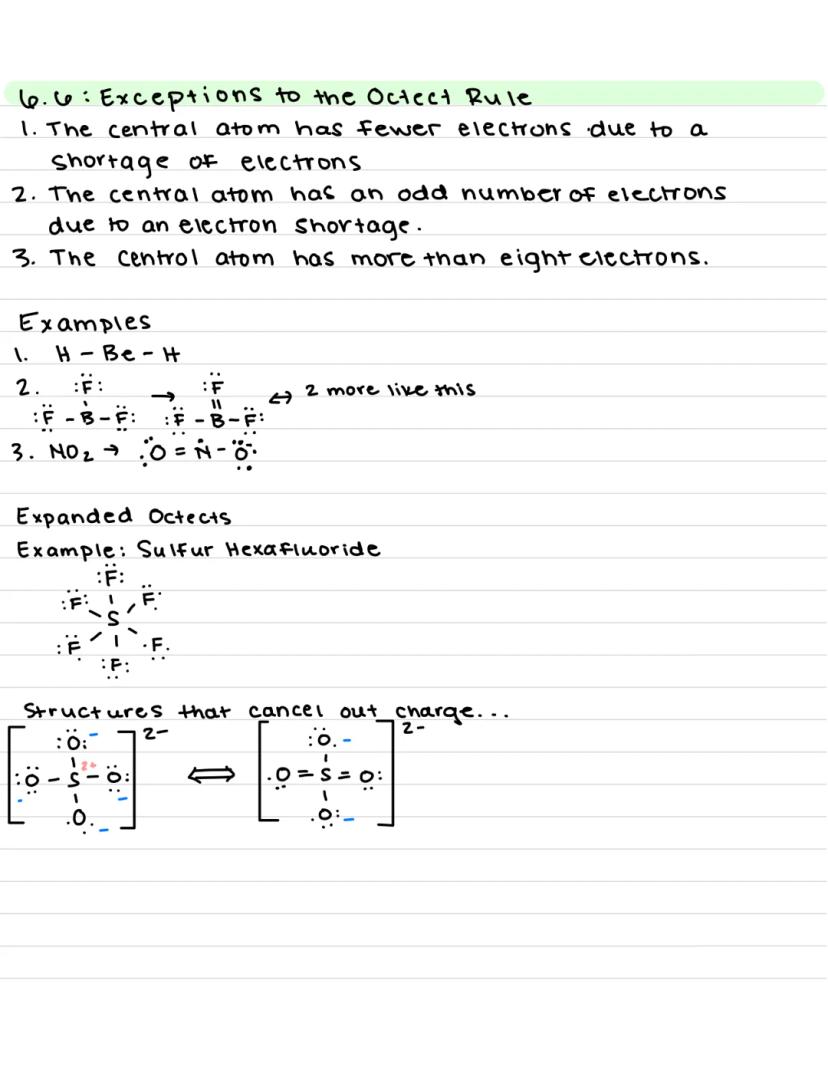 6.6: Exceptions to the Octect Rule
1. The central atom has fewer electrons due to a
shortage of electrons
2. The central atom has an odd number of electrons
due to an electron shortage.
3. The central atom has more than eight electrons.
Examples
1. H - Be - H
2. :F: → :F ⇔ 2 more like this
:F - B - F: :F - B - F:
3. NO2 → :O = N - O:
Expanded Octects
Example: Sulfur Hexafluoride
:F:
:F: F:
S
:F .F.
:F:
Structures that cancel out charge...
[:O:-]2- [:O.-]2-
:O - S2+ - O: ⇔ .O = S = O:
.O.- .O:-